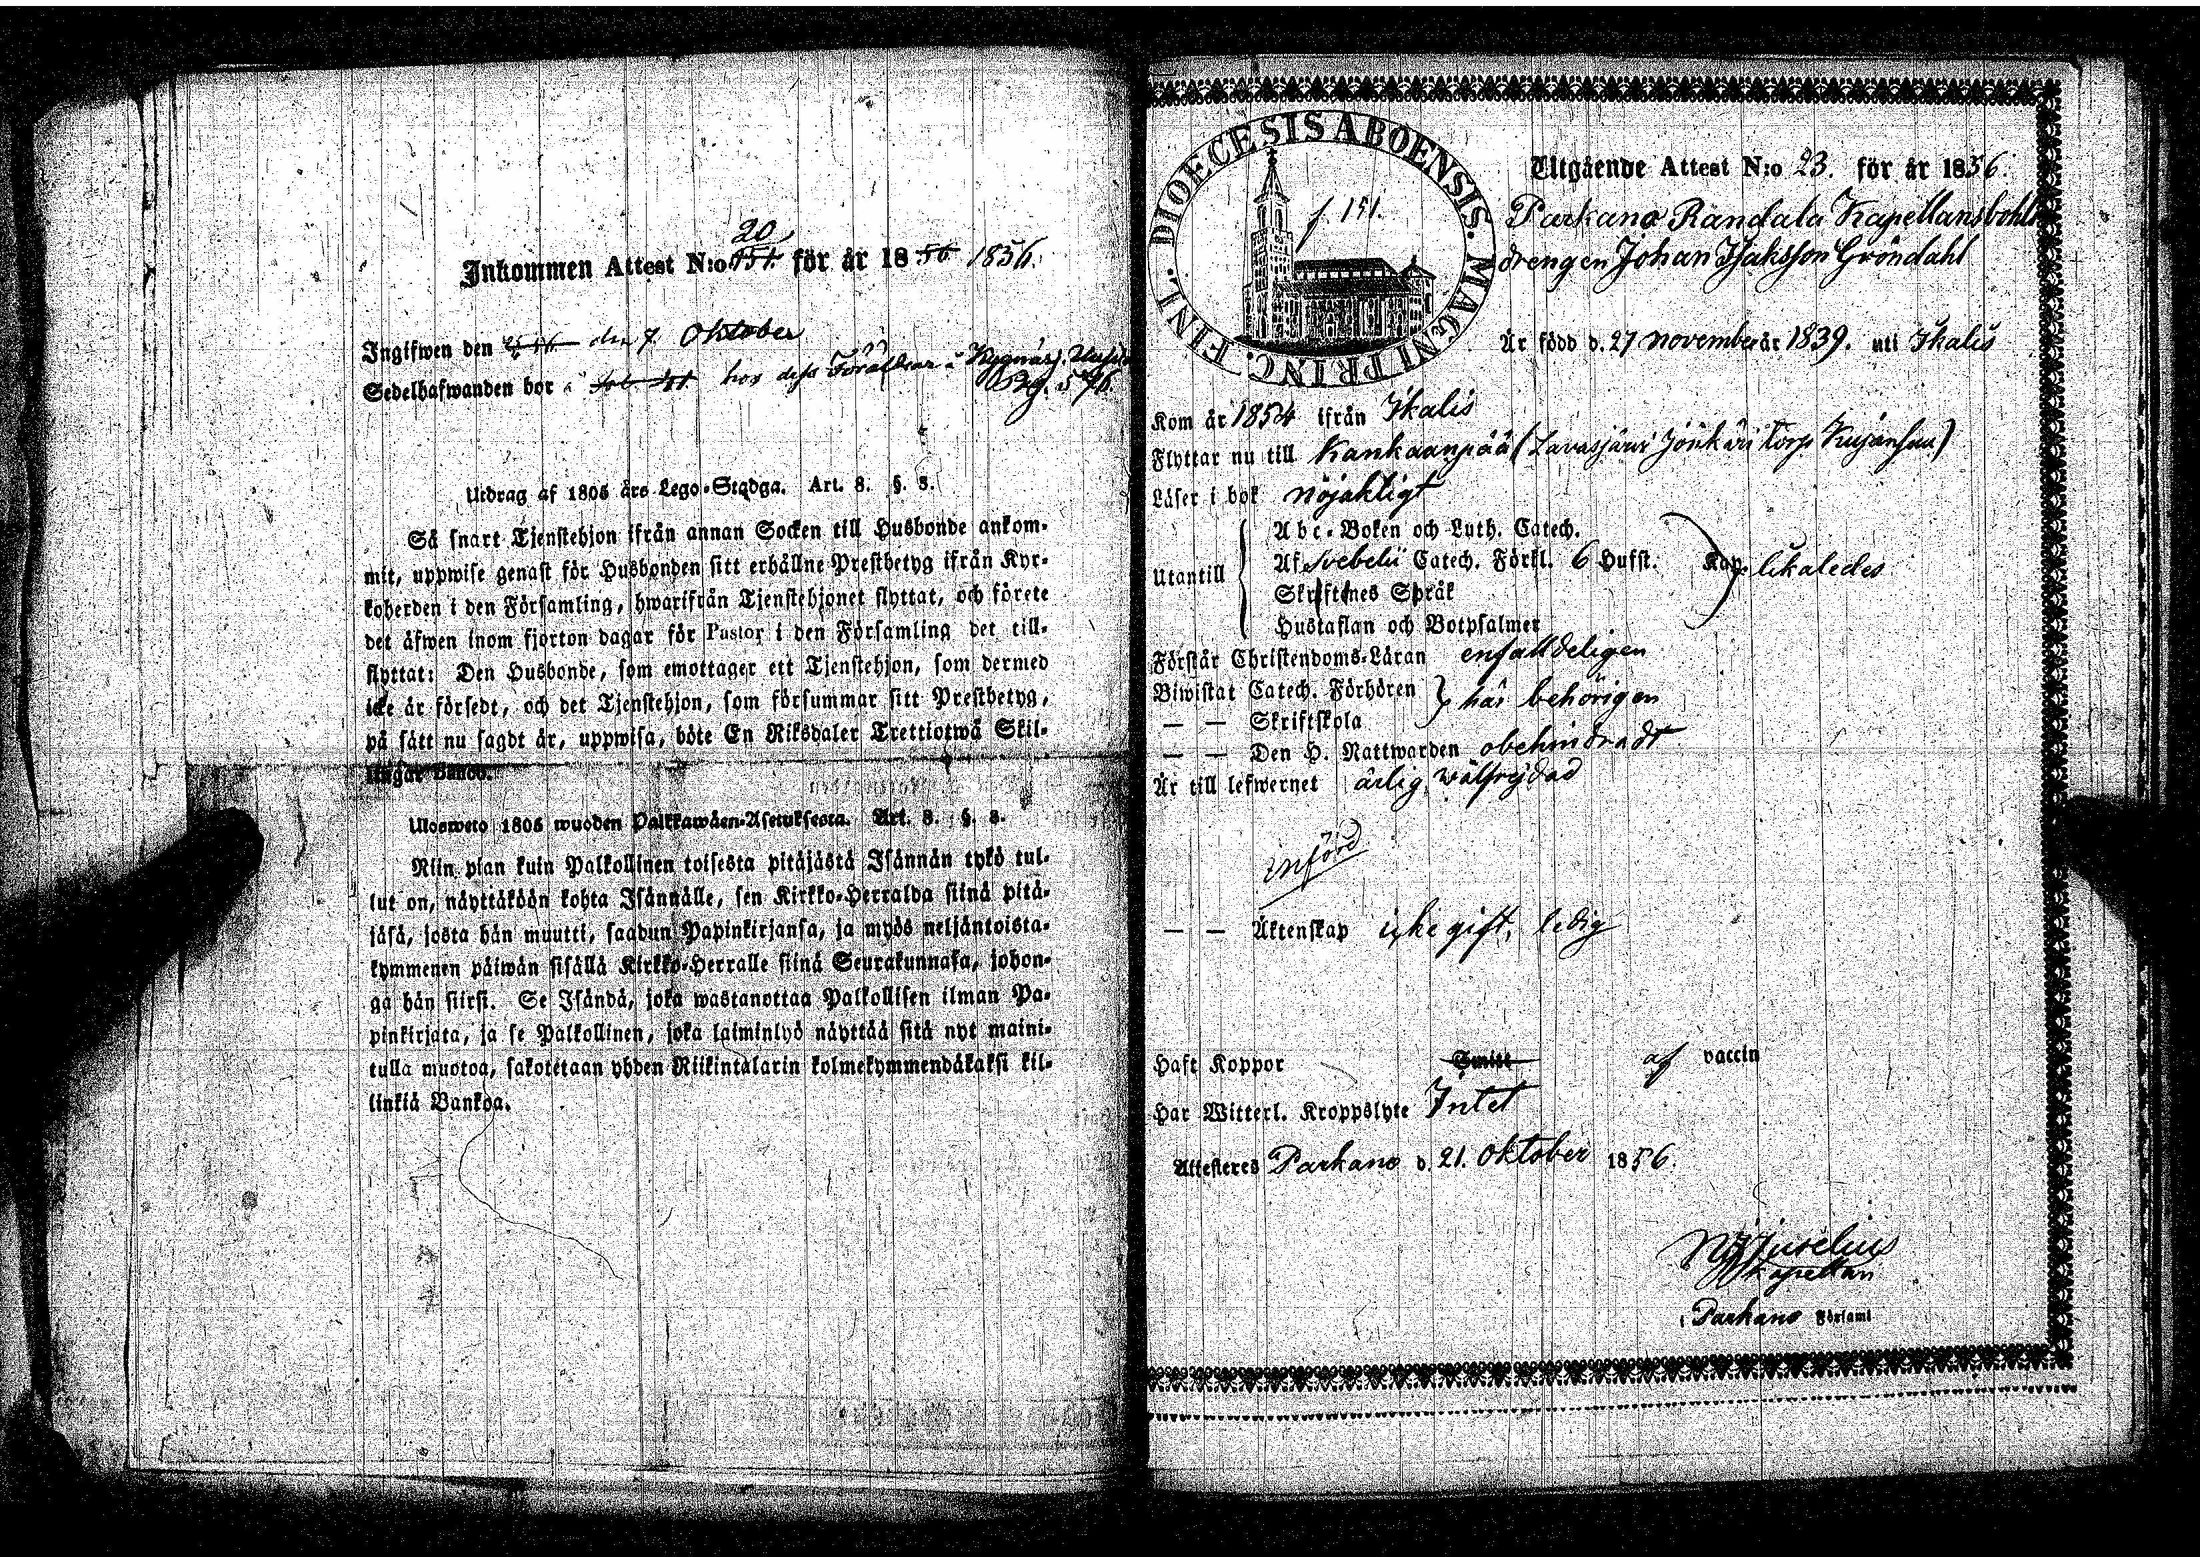 20
Inkommen Attest N:o 151. för år 18 56 1856.
Ingifwen den den 7. Oktober
Sedelhafwanden bor hos dess Föräldrar
Pag. 576.
Utdrag af 1805 års Lego-Stadga. Art. 8. §. 8.
Så snart Tjenstehjon ifrån annan Socken till Husbonde ankom-
mit, uppwise genast för Husbonden sitt erhållne Prestbetyg ifrån Kyr-
koherden i den Församling, hwarifrån Tjenstehjonet flyttat, och förete
det äfwen inom fjorton dagar för Pastor i den Församling det till-
flyttat: Den Husbonde, som emottager ett Tjenstehjon, som dermed
icke är försedt, och det Tjenstehjon, som försummar sitt Prestbetyg,
på sätt nu sagdt är, uppwisa, böte En Riksdaler Trettiotwå Skil-
lingar Banco.
Ulosweto 1805 wuoden Palkkawäen-Asetuksesta. Art. 8. §. 8.
Niin pian kuin Palkollinen toisesta pitäjästä Isännän tykö tul-
lut on, näyttäköön kohta Isännälle, sen Kirkko-Herralda siinä pitä-
jäsä, josta hän muutti, saadun Papinkirjansa, ja myös neljäntoista-
kymmenen päiwän sisällä Kirkko-Herralle siinä Seurakunnasa, johon-
ga hän siirsi. Se Isändä, joka wastanottaa Palkollisen ilman Pa-
pinkirjata, ja se Palkollinen, joka laiminlyö näyttää sitä nyt maini-
tulla muotoa, sakotetaan yhden Riikintalarin kolmekymmendäkaksi kil-
linkiä Bankoa.
DIOECESIS ABOENSIS. MAGNI PRINC. FINL.
f. 151.
Utgående Attest N:o 23. för år 1856.
Parkano Randala Kapellansbohl
drengen Johan Isaksson Gröndahl
Är född d. 27 november år 1839. uti Ikalis
Kom år 1854 ifrån Ikalis
Flyttar nu till Kankaanpää (Lavasjärvi Torp)
Läser i bok nöjaktigt
Utantill
Abc-Boken och Luth. Catech.
Af Svebelii Catech. Förkl. 6 Hufst. Kap. likaledes
Skriftenes Språk
Hustaflan och Botpsalmer
Förstår Christendoms-Läran enfalldeligen
Biwistat Catech. Förhören
— — Skriftskola här behörigen
— — Den H. Nattwarden obehindradt
Är till lefwernet ärlig, wälfrejdad
införd
— — Äktenskap icke gift, ledig
Haft Koppor Smitt af vaccin
Har Witterl. Kroppslyte Intet
Attesteres Parkano d. 21. Oktober 1856.
Juselius
Kapellan
i Parkano Församl